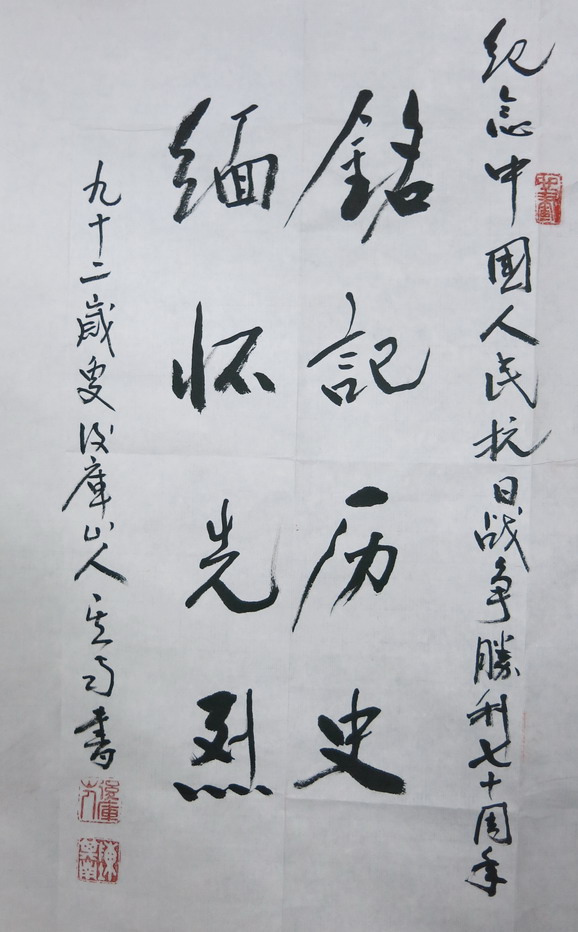 纪念中國人民抗日战争勝利七十周年
銘記历史
缅怀先烈
九十二歲叟 後庫山人 書
後庫